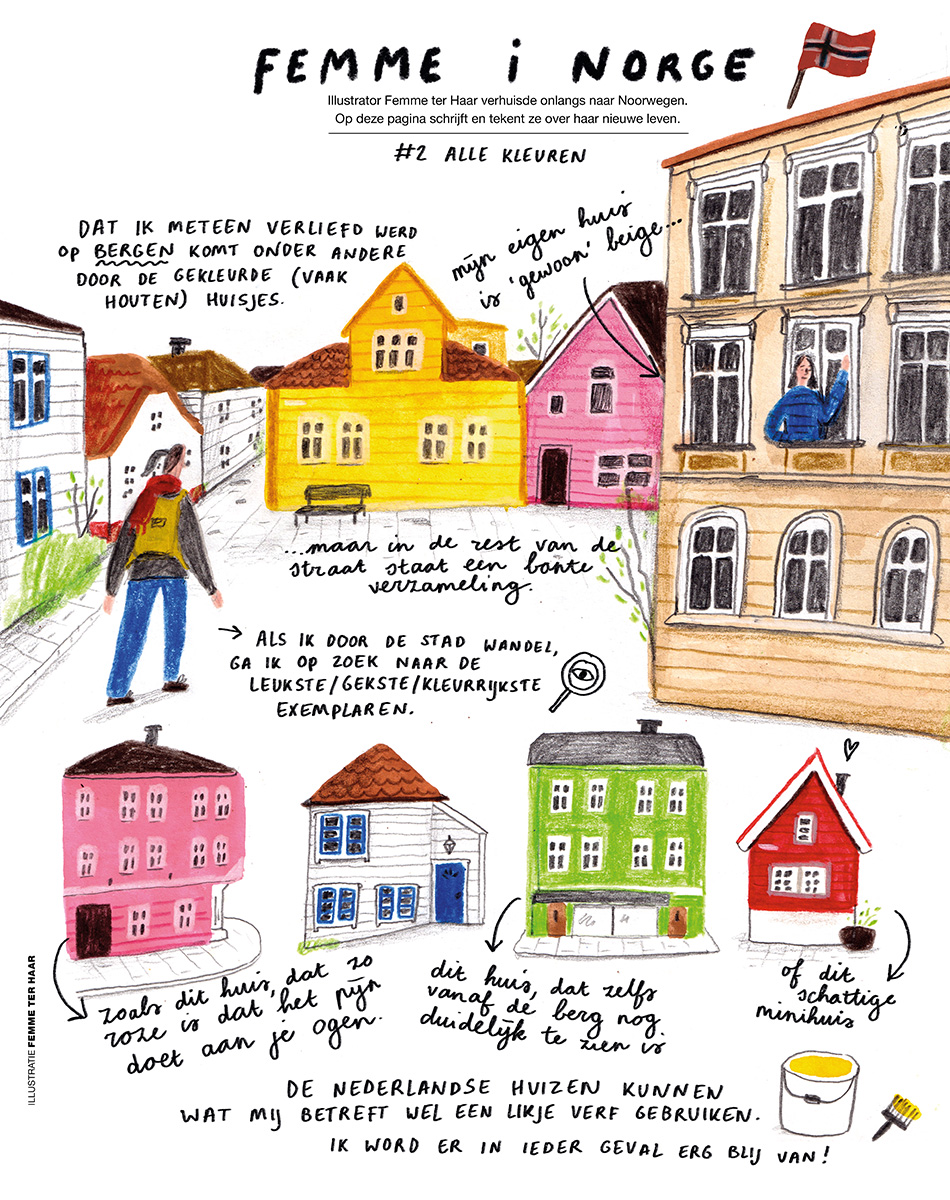 FEMME i NORGE
Illustrator Femme ter Haar verhuisde onlangs naar Noorwegen.
Op deze pagina schrijft en tekent ze over haar nieuwe leven.
#2 ALLE KLEUREN
DAT IK METEEN VERLIEFD WERD
OP BERGEN KOMT ONDER ANDERE
DOOR DE GEKLEURDE (VAAK
HOUTEN) HUISJES.
mijn eigen huis
is 'gewoon' beige...
...maar in de rest van de
straat staat een bonte
verzameling.
→ ALS IK DOOR DE STAD WANDEL,
GA IK OP ZOEK NAAR DE
LEUKSTE/GEKSTE/KLEURRIJKSTE
EXEMPLAREN.
zoals dit huis, dat zo
roze is dat het pijn
doet aan je ogen.
dit huis, dat zelfs
vanaf de berg nog
duidelijk te zien is
of dit
schattige
minihuis
DE NEDERLANDSE HUIZEN KUNNEN
WAT MIJ BETREFT WEL EEN LIKJE VERF GEBRUIKEN.
IK WORD ER IN IEDER GEVAL ERG BLIJ VAN!
ILLUSTRATIE FEMME TER HAAR